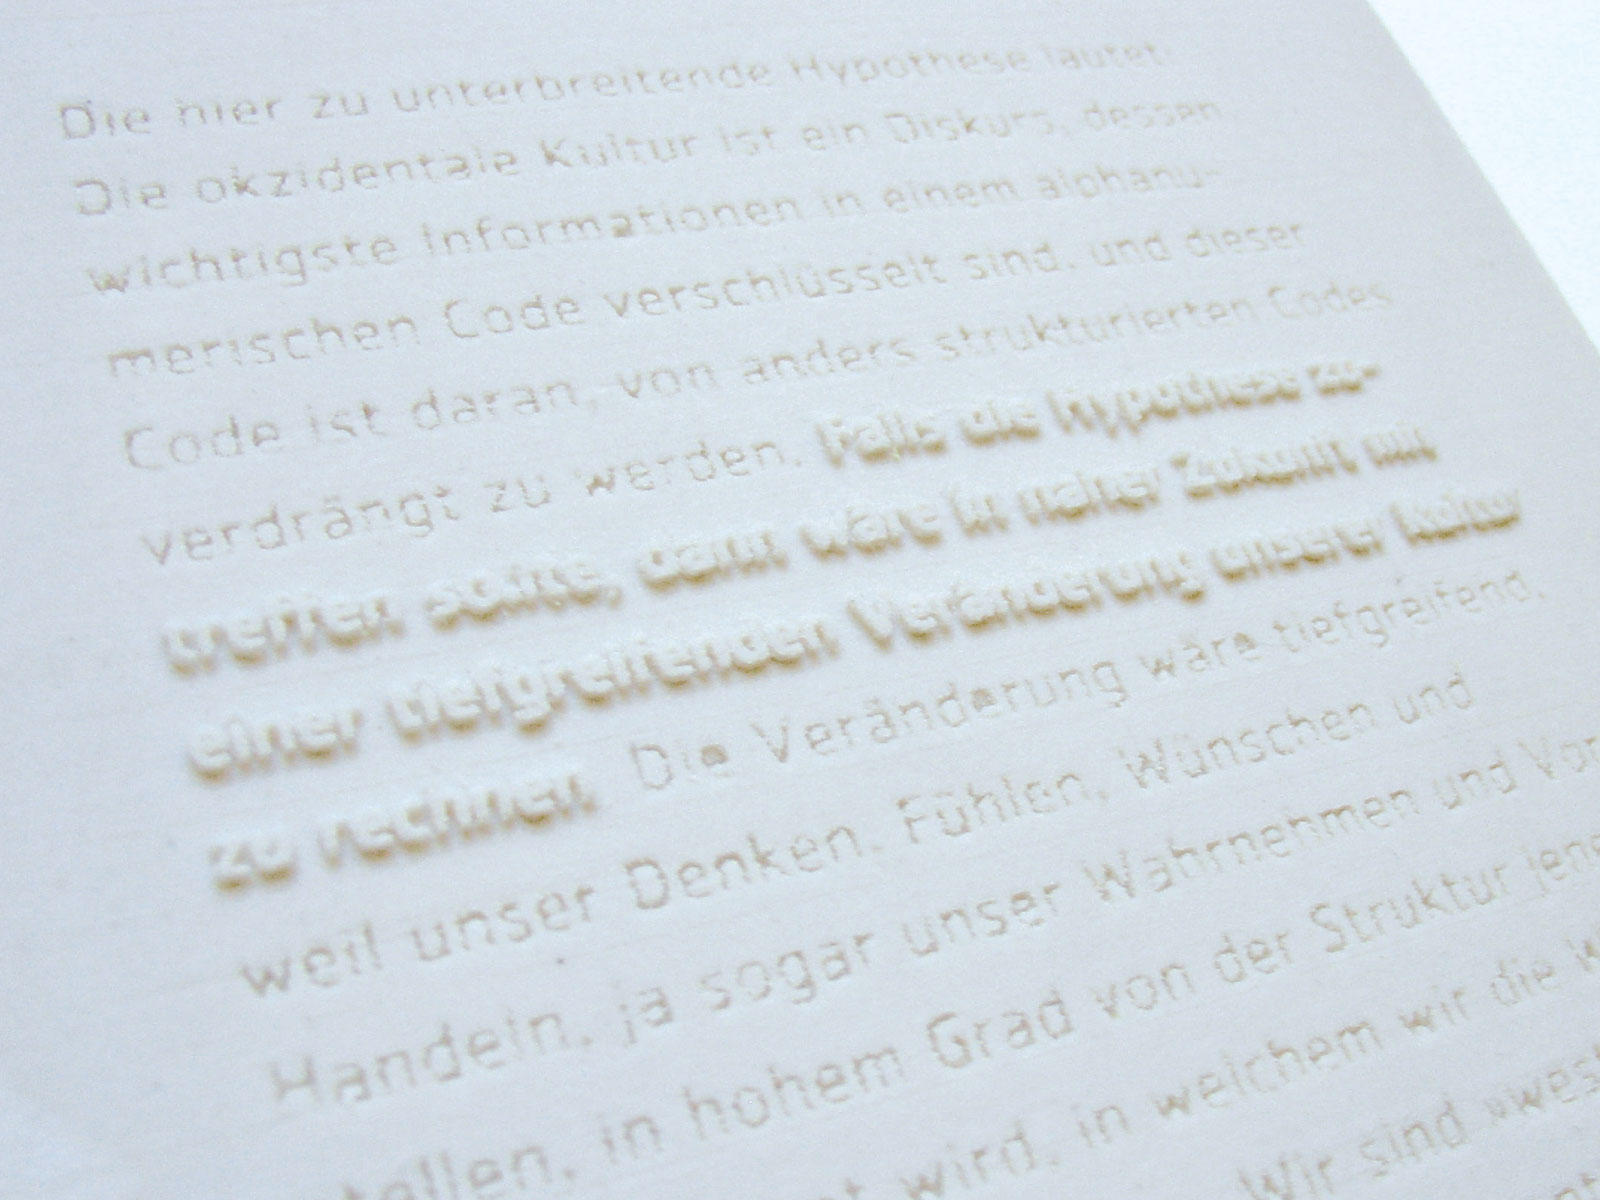 Die hier zu unterbreitende Hypothese lautet:
Die okzidentale Kultur ist ein Diskurs, dessen
wichtigste Informationen in einem alphanu-
merischen Code verschlüsselt sind, und dieser
Code ist daran, von anders strukturierten Codes
verdrängt zu werden. Falls die Hypothese zu-
treffen sollte, dann wäre in naher Zukunft mit
einer tiefgreifenden Veränderung unserer Kultur
zu rechnen. Die Veränderung wäre tiefgreifend,
weil unser Denken, Fühlen, Wünschen und
Handeln, ja sogar unser Wahrnehmen und Vor
stellen, in hohem Grad von der Struktur jene
wird, in welchem wir die W
Wir sind »west